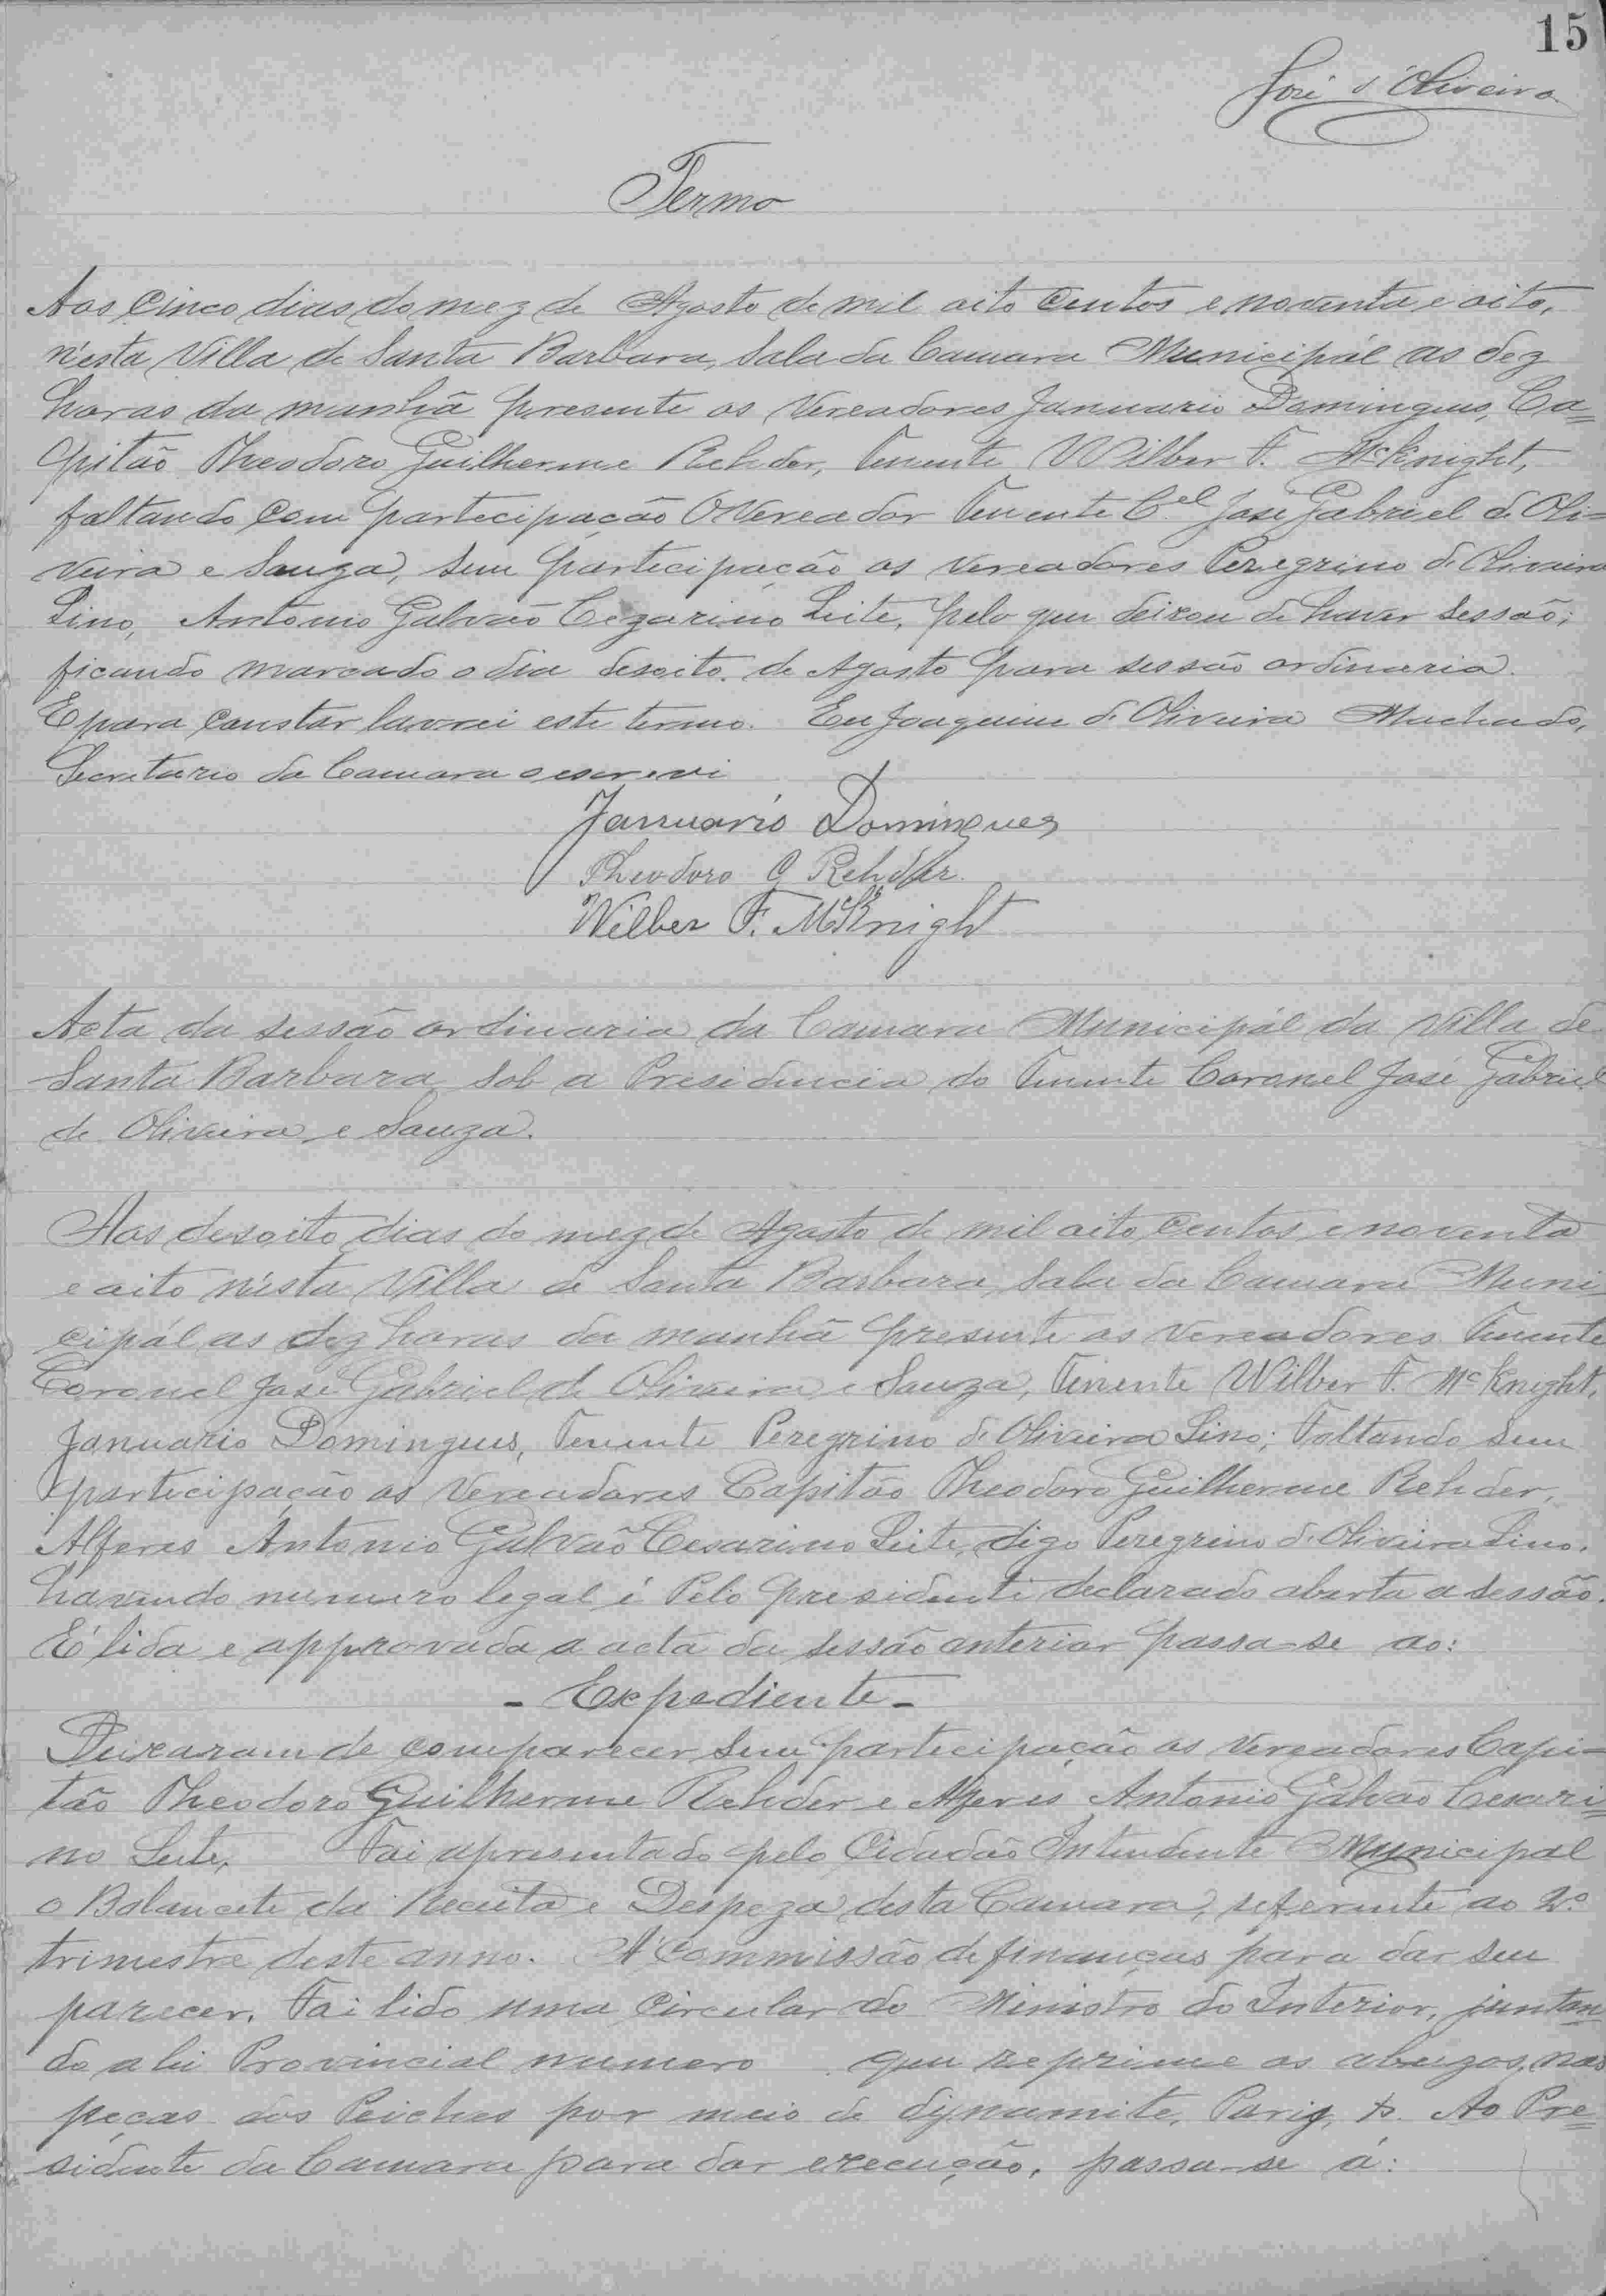 15
José d'Oliveira
Termo
Aos cinco dias do mez de Agosto de mil oito centos e noventa e oito,
n'esta Villa de Santa Barbara, Sala da Camara Municipál as dez
horas da manhã presente os Vereadores Januario Domingues, Ca=
pitão Theodoro Guilherme Rehder, Tenente Wilber F. McKnight,
faltando com partecipação O Vereador Tenente C.el José Gabriel de Oli=
veira e Souza, sem partecipação os Vereadores Peregrino de Oliveira
Lino, Antonio Galvão Cezarino Leite, pelo que deixou de haver sessão;
ficando marcado o dia desoito de Agosto para sessão ordinaria.
E para constar lavrei este termo. Eu Joaquim de Oliveira Machado,
Secretario da Camara o escrevi
Januario Domingues
Theodoro G Rehder.
Wilber F. McKnight
Acta da sessão ordinaria da Camara Municipál da Villa de
Santa Barbara sob a Presidencia do Tenente Coronel José Gabriel
de Oliveira e Souza.
Aos desoito dias do mez de Agosto de mil oito centos e noventa
e oito n'esta Villa de Santa Barbara, Sala da Camara Muni
cipál as dez horas da manhã presente os Vereadores Tenente
Coronel José Gabriel de Oliveira e Souza, Tenente Wilber F. McKnight,
Januario Domingues, Tenente Peregrino de Oliveira Lino; Faltando sem
participação os Vereadores Capitão Theodoro Guilherme Rehder,
Alferes Antonio Galvão Cesarino Leite, digo Peregrino de Oliveira Lino.
havendo numero legal é Pelo presidente declarado aberta a sessão.
E' lida e approvada a acta da sessão anterior passa-se ao:
- Expediente -
Deixaram de comparecer sem participação os Vereadores Capi=
tão Theodoro Guilherme Rehder e Alferes Antonio Galvão Cesari=
no Leite. Foi apresentado pelo Cidadão Intendente Municipal
o Balancete da Receita e Despeza desta Camara, referente ao 2.o
trimestre deste anno. A' Commissão de finanças para dar seu
parecer. Foi lido uma Circular do Ministro do Interior, juntan
do a lei Provincial numero que reprime os abuzos, nas
peças dos Peiches por meio de dynamite, Pariz, &. Ao Pre=
sidente da Camara para dar execução. passa-se á: